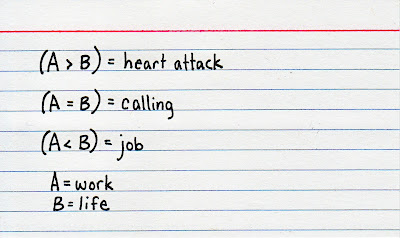 (A > B) = heart attack
(A = B) = calling
(A < B) = job
A = work
B = life